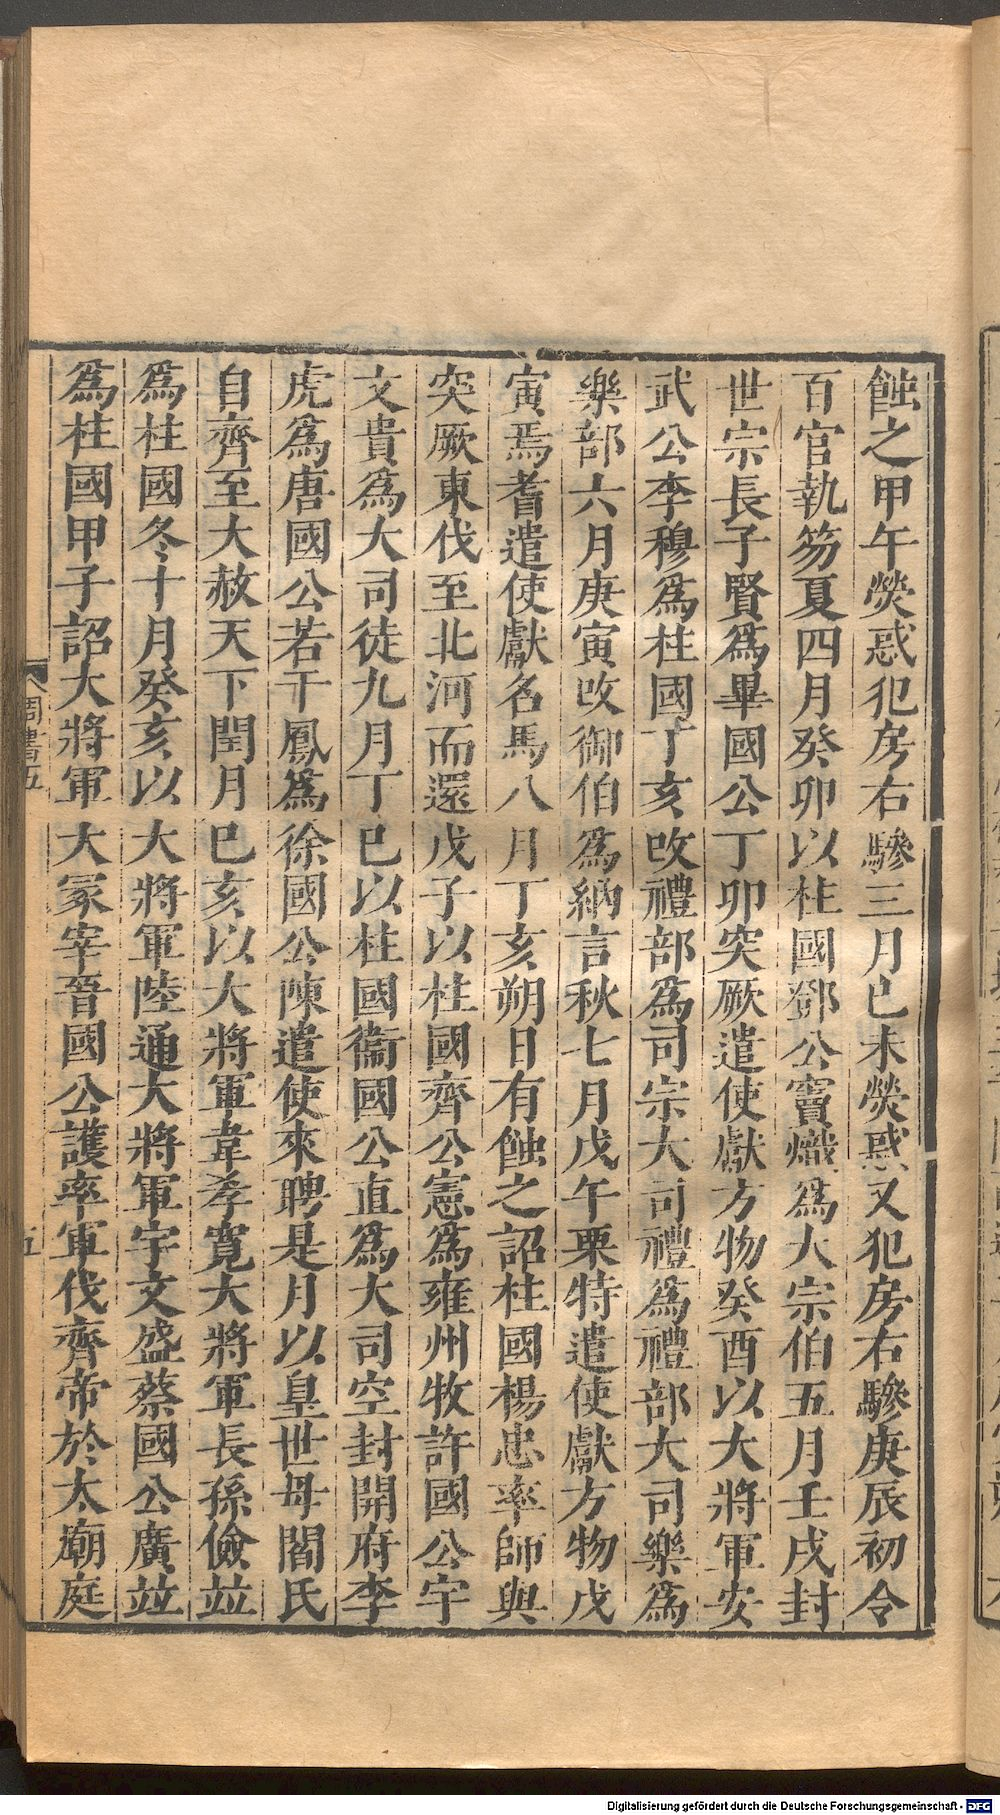 蝕之甲午熒惑犯房右驂三月已未熒惑又犯房右驂庚辰初令
百官執笏夏四月癸卯以柱國鄧公竇熾爲大宗伯五月壬戌封
世宗長子賢爲畢國公丁卯突厥遣使獻方物癸酉以大將軍安
武公李穆爲柱國丁亥改禮部爲司宗大司禮爲禮部大司樂爲
樂部六月庚寅改御伯爲納言秋七月戊午粟特遣使獻方物戊
寅焉耆遣使獻名馬八月丁亥朔日有蝕之詔柱國楊忠率師與
突厥東伐至北河而還戊子以柱國齊公憲爲雍州牧許國公宇
文貴爲大司徒九月丁巳以柱國衞國公直爲大司空封開府李
虎爲唐國公若干鳳爲徐國公陳遣使來聘是月以皇世母閻氏
自齊至大赦天下閏月巳亥以大將軍韋孝寬大將軍長孫儉竝
爲柱國冬十月癸亥以大將軍陸通大將軍宇文盛蔡國公廣竝
爲柱國甲子詔大將軍大冢宰晉國公護率軍伐齊帝於太廟庭
周書五
五
Digitalisierung gefördert durch die Deutsche Forschungsgemeinschaft - DFG